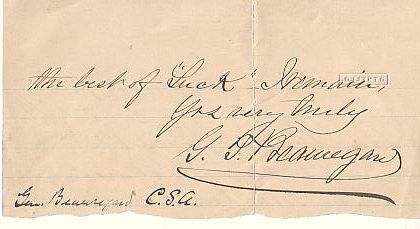 the best of "Luck" I remain,
Yrs very truly
G. T. Beauregard
Gen. Beauregard C.S.A.